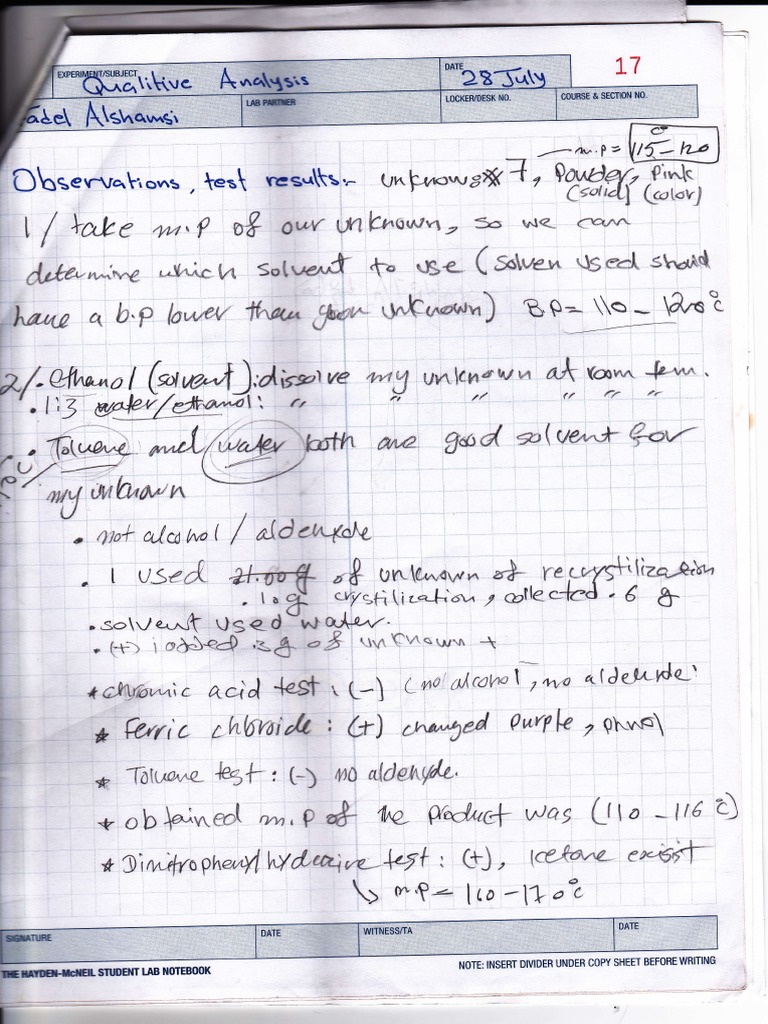 EXPERIMENT/SUBJECT
Qualitive Analysis
DATE
28 July
17
Fadel Alshamsi
LAB PARTNER
LOCKER/DESK NO.
COURSE & SECTION NO.
m.p = 115-120
Observations, test results:- unknown 7, Powder, Pink
(solid) (color)
1/ take m.p of our unknown, so we can
determine which solvent to use (solven used should
have a b.p lower than unknown) B.P = 110 - 120°C
2/. ethanol (solvent): dissolve my unknown at room tem.
. 1:3 water/ethanol: " " " " " "
. Toluene and water both are good solvent for
my unknown
. not alcohol / aldehyde
. I used 21.00g of unknown of recrystilization
. 1.0g crystilization, collected .6 g
. solvent used water.
. (+) i added .3g of unknown +
* chromic acid test: (-) (no alcohol, no aldehyde)
* Ferric chloride: (+) changed purple, phnol
* Toluene test: (-) no aldehyde.
* obtained m.p of the product was (110 - 116°C)
* Dinitrophenylhydrazine test: (+), ketone exisit
↳ m.p = 160 - 170°C
SIGNATURE
DATE
WITNESS/TA
DATE
THE HAYDEN-McNEIL STUDENT LAB NOTEBOOK
NOTE: INSERT DIVIDER UNDER COPY SHEET BEFORE WRITING